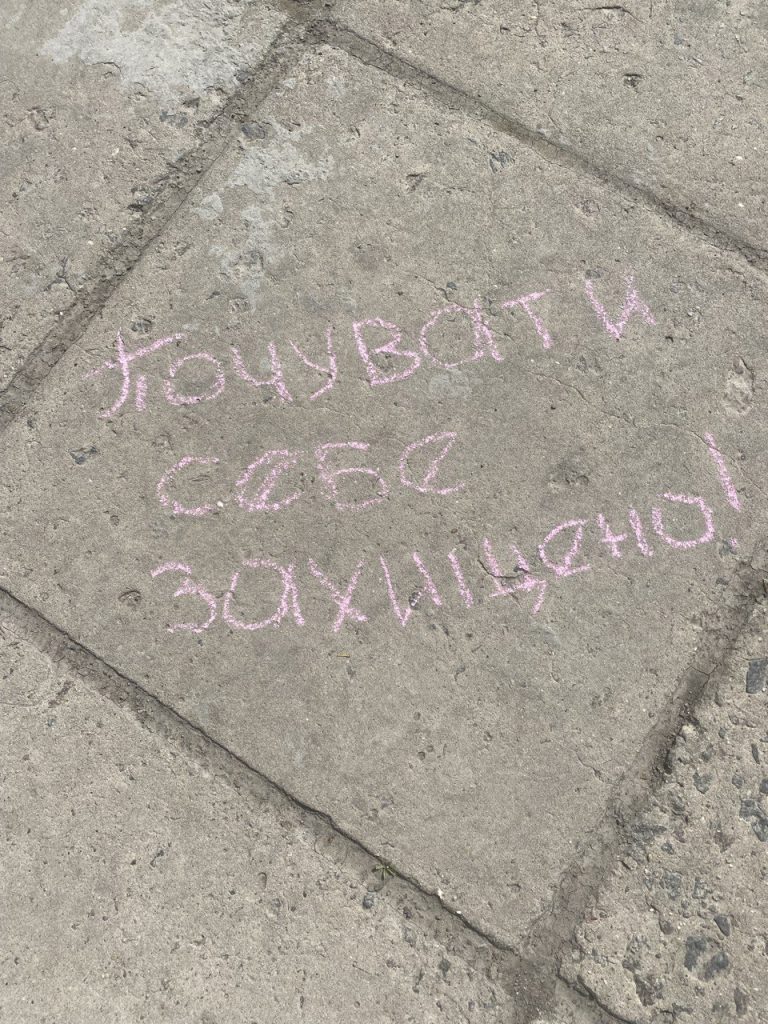 Почувати
себе
захищено!